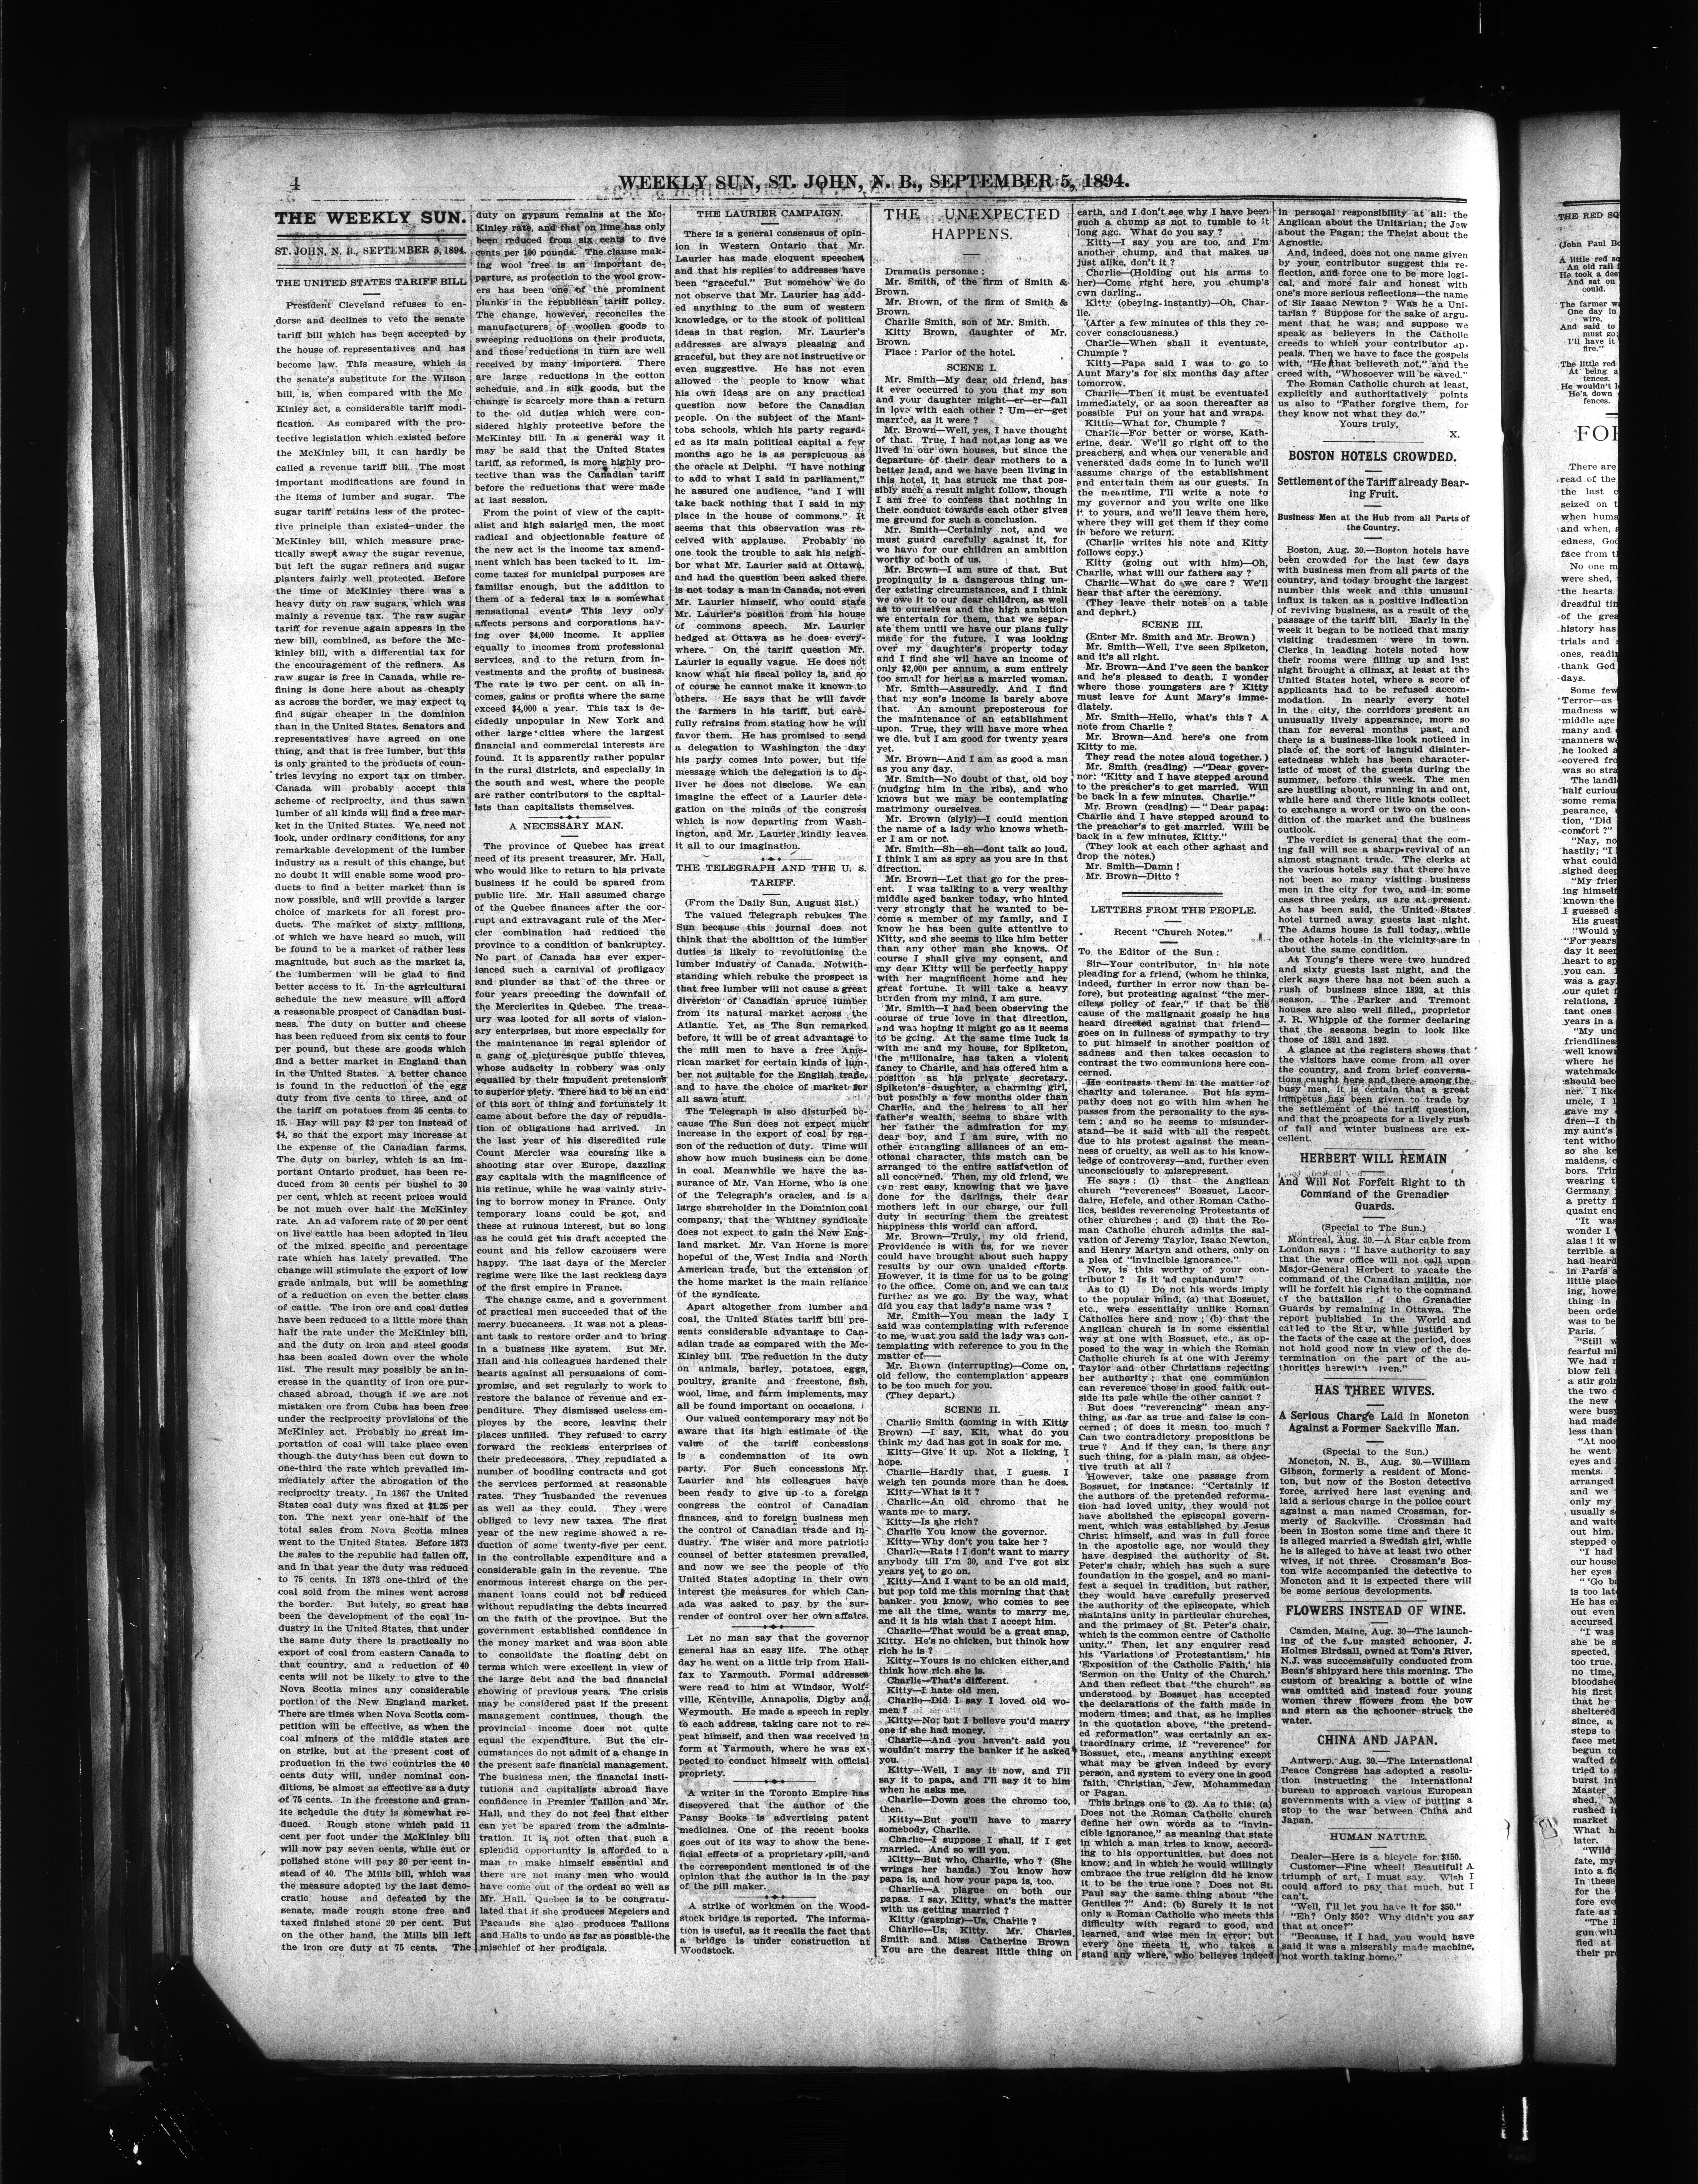 4
WEEKLY SUN, ST. JOHN, N. B., SEPTEMBER 5, 1894.
THE WEEKLY SUN.
ST. JOHN, N. B., SEPTEMBER 5, 1894.
THE UNITED STATES TARIFF BILL
President Cleveland refuses to en-
dorse and declines to veto the senate
tariff bill which has been accepted by
the house of representatives and has
become law. This measure, which is
the senate's substitute for the Wilson
bill, is, when compared with the Mc-
Kinley act, a considerable tariff modi-
fication. As compared with the pro-
tective legislation which existed before
the McKinley bill, it can hardly be
called a revenue tariff bill. The most
important modifications are found in
the items of lumber and sugar. The
sugar tariff retains less of the protec-
tive principle than existed under the
McKinley bill, which measure prac-
tically swept away the sugar revenue,
but left the sugar refiners and sugar
planters fairly well protected. Before
the time of McKinley there was a
heavy duty on raw sugars, which was
mainly a revenue tax. The raw sugar
tariff for revenue again appears in the
new bill, combined, as before the Mc-
kinley bill, with a differential tax for
the encouragement of the refiners. As
raw sugar is free in Canada, while re-
fining is done here about as cheaply
as across the border, we may expect to
find sugar cheaper in the dominion
than in the United States. Senators and
representatives have agreed on one
thing, and that is free lumber, but this
is only granted to the products of coun-
tries levying no export tax on timber.
Canada will probably accept this
scheme of reciprocity, and thus sawn
lumber of all kinds will find a free mar-
ket in the United States. We need not
look, under ordinary conditions, for any
remarkable development of the lumber
industry as a result of this change, but
no doubt it will enable some wood pro-
ducts to find a better market than is
now possible, and will provide a larger
choice of markets for all forest pro-
ducts. The market of sixty millions,
of which we have heard so much, will
be found to be a market of rather less
magnitude, but such as the market is,
the lumbermen will be glad to find
better access to it. In the agricultural
schedule the new measure will afford
a reasonable prospect of Canadian busi-
ness. The duty on butter and cheese
has been reduced from six cents to four
per pound, but these are goods which
find a better market in England than
in the United States. A better chance
is found in the reduction of the egg
duty from five cents to three, and of
the tariff on potatoes from 25 cents to
15. Hay will pay $2 per ton instead of
$4, so that the export may increase at
the expense of the Canadian farms.
The duty on barley, which is an im-
portant Ontario product, has been re-
duced from 30 cents per bushel to 30
per cent, which at recent prices would
be not much over half the McKinley
rate. An ad valorem rate of 20 per cent
on live cattle has been adopted in lieu
of the mixed specific and percentage
rate which has lately prevailed. The
change will stimulate the export of low
grade animals, but will be something
of a reduction on even the better class
of cattle. The iron ore and coal duties
have been reduced to a little more than
half the rate under the McKinley bill,
and the duty on iron and steel goods
has been scaled down over the whole
list. The result may possibly be an in-
crease in the quantity of iron ore pur-
chased abroad, though if we are not
mistaken ore from Cuba has been free
under the reciprocity provisions of the
McKinley act. Probably no great im-
portation of coal will take place even
though the duty has been cut down to
one-third the rate which prevailed im-
mediately after the abrogation of the
reciprocity treaty. In 1867 the United
States coal duty was fixed at $1.25 per
ton. The next year one-half of the
total sales from Nova Scotia mines
went to the United States. Before 1873
the sales to the republic had fallen off,
and in that year the duty was reduced
to 75 cents. In 1873 one-third of the
coal sold from the mines went across
the border. But lately, so great has
been the development of the coal in-
dustry in the United States, that under
the same duty there is practically no
export of coal from eastern Canada to
that country, and a reduction of 40
cents will not be likely to give to the
Nova Scotia mines any considerable
portion of the New England market.
There are times when Nova Scotia com-
petition will be effective, as when the
coal miners of the middle states are
on strike, but at the present cost of
production in the two countries the 40
cents duty will, under nominal con-
ditions, be almost as effective as a duty
of 75 cents. In the freestone and gran-
ite schedule the duty is somewhat re-
duced. Rough stone which paid 11
cent per foot under the McKinley bill
will now pay seven cents, while cut or
polished stone will pay 30 per cent in-
stead of 40. The Mills bill, which was
the measure adopted by the last demo-
cratic house and defeated by the
senate, made rough stone free and
taxed finished stone 20 per cent. But
on the other hand, the Mills bill left
the iron ore duty at 75 cents. The
duty on gypsum remains at the Mc-
Kinley rate, and that on lime has only
been reduced from six cents to five
cents per 100 pounds. The clause mak-
ing wool free is an important de-
parture, as protection to the wool grow-
ers has been one of the prominent
planks in the republican tariff policy.
The change, however, reconciles the
manufacturers of woollen goods to
sweeping reductions on their products,
and these reductions in turn are well
received by many importers. There
are large reductions in the cotton
schedule, and in silk goods, but the
change is scarcely more than a return
to the old duties which were con-
sidered highly protective before the
McKinley bill. In a general way it
may be said that the United States
tariff, as reformed, is more highly pro-
tective than was the Canadian tariff
before the reductions that were made
at last session.
From the point of view of the capit-
alist and high salaried men, the most
radical and objectionable feature of
the new act is the income tax amend-
ment which has been tacked to it. In-
come taxes for municipal purposes are
familiar enough, but the addition to
them of a federal tax is a somewhat
sensational event. This levy only
affects persons and corporations hav-
ing over $4,000 income. It applies
equally to incomes from professional
services, and to the return from in-
vestments and the profits of business.
The rate is two per cent. on all in-
comes, gains or profits where the same
exceed $4,000 a year. This tax is de-
cidedly unpopular in New York and
other large cities where the largest
financial and commercial interests are
found. It is apparently rather popular
in the rural districts, and especially in
the south and west, where the people
are rather contributors to the capital-
ists than capitalists themselves.
A NECESSARY MAN.
The province of Quebec has great
need of its present treasurer, Mr. Hall,
who would like to return to his private
business if he could be spared from
public life. Mr. Hall assumed charge
of the Quebec finances after the cor-
rupt and extravagant rule of the Mer-
cier combination had reduced the
province to a condition of bankruptcy.
No part of Canada has ever exper-
ienced such a carnival of profligacy
and plunder as that of the three or
four years preceding the downfall of
the Mercierites in Quebec. The treas-
ury was looted for all sorts of vision-
ary enterprises, but more especially for
the maintenance in regal splendor of
a gang of picturesque public thieves,
whose audacity in robbery was only
equalled by their impudent pretensions
to superior piety. There had to be an end
of this sort of thing and fortunately it
came about before the day of repudia-
tion of obligations had arrived. In
the last year of his discredited rule
Count Mercier was coursing like a
shooting star over Europe, dazzling
gay capitals with the magnificence of
his retinue, while he was vainly striv-
ing to borrow money in France. Only
temporary loans could be got, and
these at ruinous interest, but so long
as he could get his draft accepted the
count and his fellow carousers were
happy. The last days of the Mercier
regime were like the last reckless days
of the first empire in France.
The change came, and a government
of practical men succeeded that of the
merry buccaneers. It was not a pleas-
ant task to restore order and to bring
in a business like system. But Mr.
Hall and his colleagues hardened their
hearts against all persuasions of com-
promise, and set regularly to work to
restore the balance of revenue and ex-
penditure. They dismissed useless em-
ployes by the score, leaving their
places unfilled. They refused to carry
forward the reckless enterprises of
their predecessors. They repudiated a
number of boodling contracts and got
the services performed at reasonable
rates. They husbanded the revenues
as well as they could. They were
obliged to levy new taxes. The first
year of the new regime showed a re-
duction of some twenty-five per cent.
in the controllable expenditure and a
considerable gain in the revenue. The
enormous interest charge on the per-
manent loans could not be reduced
without repudiating the debts incurred
on the faith of the province. But the
government established confidence in
the money market and was soon able
to consolidate the floating debt on
terms which were excellent in view of
the large debt and the bad financial
showing of previous years. The crisis
may be considered past if the present
management continues, though the
provincial income does not quite
equal the expenditure. But the cir-
cumstances do not admit of a change in
the present safe financial management.
The business men, the financial insti-
tutions and capitalists abroad have
confidence in Premier Taillon and Mr.
Hall, and they do not feel that either
can yet be spared from the adminis-
tration. It is not often that such a
splendid opportunity is afforded to a
man to make himself essential and
there are not many men who would
have come out of the ordeal so well as
Mr. Hall. Quebec is to be congratu-
lated that if she produces Merciers and
Pacauds she also produces Taillons
and Halls to undo as far as possible the
mischief of her prodigals.
THE LAURIER CAMPAIGN.
There is a general consensus of opin-
ion in Western Ontario that Mr.
Laurier has made eloquent speeches
and that his replies to addresses have
been "graceful." But somehow we do
not observe that Mr. Laurier has add-
ed anything to the sum of western
knowledge, or to the stock of political
ideas in that region. Mr. Laurier's
addresses are always pleasing and
graceful, but they are not instructive or
even suggestive. He has not even
allowed the people to know what
his own ideas are on any practical
question now before the Canadian
people. On the subject of the Mani-
toba schools, which his party regard-
ed as its main political capital a few
months ago he is as perspicuous as
the oracle at Delphi. "I have nothing
to add to what I said in parliament,"
he assured one audience, "and I will
take back nothing that I said in my
place in the house of commons." It
seems that this observation was re-
ceived with applause. Probably no
one took the trouble to ask his neigh-
bor what Mr. Laurier said at Ottawa,
and had the question been asked there
is not today a man in Canada, not even
Mr. Laurier himself, who could state
Mr. Laurier's position from his house
of commons speech. Mr. Laurier
hedged at Ottawa as he does every-
where. On the tariff question Mr.
Laurier is equally vague. He does not
know what his fiscal policy is, and so
of course he cannot make it known to
others. He says that he will favor
the farmers in his tariff, but care-
fully refrains from stating how he will
favor them. He has promised to send
a delegation to Washington the day
his party comes into power, but the
message which the delegation is to de-
liver he does not disclose. We can
imagine the effect of a Laurier dele-
gation on the minds of the congress
which is now departing from Wash-
ington, and Mr. Laurier kindly leaves
it all to our imagination.
THE TELEGRAPH AND THE U. S.
TARIFF.
(From the Daily Sun, August 31st.)
The valued Telegraph rebukes The
Sun because this journal does not
think that the abolition of the lumber
duties is likely to revolutionize the
lumber industry of Canada. Notwith-
standing which rebuke the prospect is
that free lumber will not cause a great
diversion of Canadian spruce lumber
from its natural market across the
Atlantic. Yet, as The Sun remarked
before, it will be of great advantage to
the mill men to have a free Ame-
rican market for certain kinds of lum-
ber not suitable for the English trade,
and to have the choice of market for
all sawn stuff.
The Telegraph is also disturbed be-
cause The Sun does not expect much
increase in the export of coal by rea-
son of the reduction of duty. Time will
show how much business can be done
in coal. Meanwhile we have the as-
surance of Mr. Van Horne, who is one
of the Telegraph's oracles, and is a
large shareholder in the Dominion coal
company, that the Whitney syndicate
does not expect to gain the New Eng-
land market. Mr. Van Horne is more
hopeful of the West India and North
American trade, but the extension of
the home market is the main reliance
of the syndicate.
Apart altogether from lumber and
coal, the United States tariff bill pre-
sents considerable advantage to Can-
adian trade as compared with the Mc-
Kinley bill. The reduction in the duty
on animals, barley, potatoes, eggs,
poultry, granite and freestone, fish,
wool, lime, and farm implements, may
all be found important on occasions.
Our valued contemporary may not be
aware that its high estimate of the
value of the tariff concessions
is a condemnation of its own
party. For Such concessions Mr.
Laurier and his colleagues have
been ready to give up to a foreign
congress the control of Canadian
finances, and to foreign business men
the control of Canadian trade and in-
dustry. The wiser and more patriotic
counsel of better statesmen prevailed,
and now we see the people of the
United States adopting in their own
interest the measures for which Can-
ada was asked to pay by the sur-
render of control over her own affairs.
Let no man say that the governor
general has an easy life. The other
day he went on a little trip from Hali-
fax to Yarmouth. Formal addresses
were read to him at Windsor, Wolf-
ville, Kentville, Annapolis, Digby and
Weymouth. He made a speech in reply
to each address, taking care not to re-
peat himself, and then was received in
form at Yarmouth, where he was ex-
pected to conduct himself with official
propriety.
A writer in the Toronto Empire has
discovered that the author of the
Pansy Books is advertising patent
medicines. One of the recent books
goes out of its way to show the bene-
ficial effects of a proprietary pill, and
the correspondent mentioned is of the
opinion that the author is in the pay
of the pill maker.
A strike of workmen on the Wood-
stock bridge is reported. The informa-
tion is useful, as it recalls the fact that
a bridge is under construction at
Woodstock.
THE UNEXPECTED
HAPPENS.
Dramatis personae :
Mr. Smith, of the firm of Smith &
Brown.
Mr. Brown, of the firm of Smith &
Brown.
Charlie Smith, son of Mr. Smith.
Kitty Brown, daughter of Mr.
Brown.
Place : Parlor of the hotel.
SCENE I.
Mr. Smith—My dear old friend, has
it ever occurred to you that my son
and your daughter might—er—er—fall
in love with each other ? Um—er—get
married, as it were ?
Mr. Brown—Well, yes, I have thought
of that. True, I had not,as long as we
lived in our own houses, but since the
departure of their dear mothers to a
better land, and we have been living in
this hotel, it has struck me that pos-
sibly such a result might follow, though
I am free to confess that nothing in
their conduct towards each other gives
me ground for such a conclusion.
Mr. Smith—Certainly not, and we
must guard carefully against it, for
we have for our children an ambition
worthy of both of us.
Mr. Brown—I am sure of that. But
propinquity is a dangerous thing un-
der existing circumstances, and I think
we owe it to our dear children, as well
as to ourselves and the high ambition
we entertain for them, that we separ-
ate them until we have our plans fully
made for the future. I was looking
over my daughter's property today
and I find she wil have an income of
only $2,000 per annum, a sum entirely
too small for her as a married woman.
Mr. Smith—Assuredly. And I find
that my son's income is barely above
that. An amount preposterous for
the maintenance of an establishment
upon. True, they will have more when
we die, but I am good for twenty years
yet.
Mr. Brown—And I am as good a man
as you any day.
Mr. Smith—No doubt of that, old boy
(nudging him in the ribs), and who
knows but we may be contemplating
matrimony ourselves.
Mr. Brown (slyly)—I could mention
the name of a lady who knows wheth-
er I am or not.
Mr. Smith—Sh—sh—dont talk so loud.
I think I am as spry as you are in that
direction.
Mr. Brown—Let that go for the pres-
ent. I was talking to a very wealthy
middle aged banker today, who hinted
very strongly that he wanted to be-
come a member of my family, and I
know he has been quite attentive to
Kitty, and she seems to like him better
than any other man she knows. Of
course I shall give my consent, and
my dear Kitty will be perfectly happy
with her magnificent home and her
great fortune. It will take a heavy
burden from my mind, I am sure.
Mr. Smith—I had been observing the
course of true love in that direction,
and was hoping it might go as it seems
to be going. At the same time luck is
with me and my house, for Spiketon,
the millionaire, has taken a violent
fancy to Charlie, and has offered him a
position as his private secretary.
Spiketon's daughter, a charming girl,
but possibly a few months older than
Charlie, and the heiress to all her
father's wealth, seems to share with
her father the admiration for my
dear boy, and I am sure, with no
other entangling alliances of an em-
otional character, this match can be
arranged to the entire satisfaction of
all concerned. Then, my old friend, we
can rest easy, knowing that we have
done for the darlings, their dear
mothers left in our charge, our full
duty in securing them the greatest
happiness this world can afford.
Mr. Brown—Truly, my old friend,
Providence is with us, for we never
could have brought about such happy
results by our own unaided efforts.
However, it is time for us to be going
to the office. Come on, and we can talk
further as we go. By the way, what
did you say that lady's name was ?
Mr. Smith—You mean the lady I
said was contemplating with reference
to me, what you said the lady was con-
templating with reference to you in the
matter of——
Mr. Brown (interrupting)—Come on,
old fellow, the contemplation appears
to be too much for you.
(They depart.)
SCENE II.
Charlie Smith (coming in with Kitty
Brown) —I say, Kit, what do you
think my dad has got in soak for me.
Kitty—Give it up. Not a licking, I
hope.
Charlie—Hardly that, I guess. I
weigh ten pounds more than he does.
Kitty—What is it ?
Charlie—An old chromo that he
wants me to mary.
Kitty—Is she rich?
Charlie You know the governor.
Kitty—Why don't you take her ?
Charlie—Rats ! I don't want to marry
anybody till I'm 30, and I've got six
years yet to go on.
Kitty—And I want to be an old maid,
but pop told me this morning that that
banker you know, who comes to see
me all the time, wants to marry me,
and it is his wish that I accept him.
Charlie—That would be a great snap,
Kitty. He's no chicken, but thinok how
rich he is ?
Kitty—Yours is no chicken either,and
think how rich she is.
Charlie—That's different.
Kitty—I hate old men.
Charlie—Did I say I loved old wo-
men ?
Kitty—No; but I believe you'd marry
one if she had money.
Charlie—And you haven't said you
wouldn't marry the banker if he asked
you.
Kitty—Well, I say it now, and I'll
say it to papa, and I'll say it to him
when he asks me.
Charlie—Down goes the chromo too,
then.
Kitty—But you'll have to marry
somebody, Charlie.
Charlie—I suppose I shall, if I get
married. And so will you.
Kitty—But who, Charlie, who ? (She
wrings her hands.) You know how
papa is, and how your papa is, too.
Charlie—A plague on both our
papas. I say, Kitty, what's the matter
with us getting married ?
Kitty (gasping)—Us, Charlie ?
Charlie—Us, Kitty. Mr. Charles
Smith and Miss Catherine Brown
You are the dearest little thing on
earth, and I don't see why I have been
such a chump as not to tumble to it
long ago. What do you say ?
Kitty—I say you are too, and I'm
another chump, and that makes us
just alike, don't it ?
Charlie—(Holding out his arms to
her)—Come right here, you chump's
own darling..
Kitty (obeying instantly)—Oh, Char-
lie.
(After a few minutes of this they re-
cover consciousness.)
Charlie—When shall it eventuate,
Chumpie ?
Kitty—Papa said I was to go to
Aunt Mary's for six months day after
tomorrow.
Charlie—Then it must be eventuated
immediately, or as soon thereafter as
possible Put on your hat and wraps.
Kittie—What for, Chumpie ?
Charlie—For better or worse, Kath-
erine, dear. We'll go right off to the
preachers, and when our venerable and
venerated dads come in to lunch we'll
assume charge of the establishment
and entertain them as our guests. In
the meantime, I'll write a note to
my governor and you write one like
it to yours, and we'll leave them here,
where they will get them if they come
in before we return.
(Charlie writes his note and Kitty
follows copy.)
Kitty (going out with him)—Oh,
Charlie, what will our fathers say ?
Charlie—What do we care ? We'll
hear that after the ceremony.
(They leave their notes on a table
and depart.)
SCENE III.
(Enter Mr. Smith and Mr. Brown )
Mr. Smith—Well, I've seen Spiketon,
and it's all right.
Mr. Brown—And I've seen the banker
and he's pleased to death. I wonder
where those youngsters are ? Kitty
must leave for Aunt Mary's imme-
diately.
Mr. Smith—Hello, what's this ? A
note from Charlie ?
Mr. Brown—And here's one from
Kitty to me.
They read the notes aloud together. )
Mr. Smith (reading) —"Dear gover-
nor: "Kitty and I have stepped around
to the preacher's to get married. Will
be back in a few minutes. Charlie."
Mr. Brown (reading) — "Dear papa:
Charlie and I have stepped around to
the preacher's to get married. Will be
back in a few minutes, Kitty."
(They look at each other aghast and
drop the notes.)
Mr. Smith—Damn !
Mr. Brown—Ditto ?
LETTERS FROM THE PEOPLE.
Recent "Church Notes."
To the Editor of the Sun :
Sir—Your contributor, in his note
pleading for a friend, (whom he thinks,
indeed, further in error now than be-
fore), but protesting against "the mer-
ciless policy of fear," if that be the
cause of the malignant gossip he has
heard directed against that friend—
goes on in fullness of sympathy to try
to put himself in another position of
sadness and then takes occasion to
contrast the two communions here con-
cerned.
He contrasts them in the matter of
charity and tolerance. But his sym-
pathy does not go with him when he
passes from the personality to the sys-
tem ; and so he seems to misunder-
stand—be it said with all the respect
due to his protest against the mean-
ness of cruelty, as well as to his know-
ledge of controversy—and, further even
unconsciously to misrepresent.
He says : (1) that the Anglican
church "reverences" Bossuet, Lacor-
daire, Hefele, and other Roman Catho-
lics, besides reverencing Protestants of
other churches ; and (2) that the Ro-
man Catholic church admits the sal-
vation of Jeremy Taylor, Isaac Newton,
and Henry Martyn and others, only on
a plea of "invincible ignorance."
Now, is this worthy of your con-
tributor ? Is it 'ad captandum'?
As to (1) Do not his words imply
to the popular mind, (a) that Bossuet,
etc., were essentially unlike Roman
Catholics here and now ; (b) that the
Anglican church is in some essential
way at one with Bossuet, etc., as op-
posed to the way in which the Roman
Catholic church is at one with Jeremy
Taylor and other Christians rejecting
her authority ; that one communion
can reverence those in good faith out-
side its pale while the other cannot ?
But does "reverencing" mean any-
thing, as far as true and false is con-
cerned ; of does it mean too much ?
Can two contradictory propositions be
true ? And if they can, is there any
such thing, for a plain man, as objec-
tive truth at all ?
However, take one passage from
Bossuet, for instance: "Certainly if
the authors of the pretended reforma-
tion had loved unity, they would not
have abolished the episcopal govern-
ment, which was established by Jesus
Christ himself, and was in full force
in the apostolic age, nor would they
have despised the authority of St.
Peter's chair, which has such a sure
foundation in the gospel, and so mani-
fest a sequel in tradition, but rather,
they would have carefully preserved
the authority of the episcopate, which
maintains unity in particular churches,
and the primacy of St. Peter's chair,
which is the common centre of Catholic
unity." Then, let any enquirer read
his 'Variations of Protestantism,' his
'Exposition of the Catholic Faith,' his
'Sermon on the Unity of the Church.'
And then reflect that "the church" as
understood by Bossuet has accepted
the declarations of the faith made in
modern times; and that, as he implies
in the quotation above, "the pretend-
ed reformation" was certainly an ex-
traordinary crime, if "reverence" for
Bossuet, etc., means anything except
what may be given indeed by every
person, and system to every one in good
faith, 'Christian, Jew, Mohammedan
or Pagan.
This brings one to (2). As to this: (a)
Does not the Roman Catholic church
define her own words as to "invin-
cible ignorance," as meaning that state
in which a man tries to know, accord-
ing to his opportunities, but does not
know; and in which he would willingly
embrace the true religion did he know
it to be the true one ? Does not St.
Paul say the same thing about "the
Gentiles ?" And: (b) Surely it is not
only a Roman Catholic who meets this
difficulty with regard to good, and
learned, and wise men in error; but
every one meets it, who takes a
stand any where, who believes indeed
in personal responsibility at all: the
Anglican about the Unitarian; the Jew
about the Pagan; the Theist about the
Agnostic.
And, indeed, does not one name given
by your contributor suggest this re-
flection, and force one to be more logi-
cal, and more fair and honest with
one's more serious reflections—the name
of Sir Isaac Newton ? Was he a Uni-
tarian ? Suppose for the sake of argu-
ment that he was; and suppose we
speak as believers in the Catholic
creeds to which your contributor ap-
peals. Then we have to face the gospels
with, "He that believeth not," and the
creed with, "Whosoever will be saved."
The Roman Catholic church at least,
explicitly and authoritatively points
us also to "Father forgive them, for
they know not what they do."
Yours truly,
X.
BOSTON HOTELS CROWDED.
Settlement of the Tariff already Bear-
ing Fruit.
Business Men at the Hub from all Parts of
the Country.
Boston, Aug. 30.—Boston hotels have
been crowded for the last few days
with business men from all parts of the
country, and today brought the largest
number this week and this unusual
influx is taken as a positive indication
of reviving business, as a result of the
passage of the tariff bill. Early in the
week it began to be noticed that many
visiting tradesmen were in town.
Clerks in leading hotels noted how
their rooms were filling up and last
night brought a climax, at least at the
United States hotel, where a score of
applicants had to be refused accom-
modation. In nearly every hotel
in the city, the corridors present an
unusually lively appearance, more so
than for several months past, and
there is a business-like look noticed in
place of the sort of languid disinter-
estedness which has been character-
istic of most of the guests during the
summer, before this week. The men
are hustling about, running in and out,
while here and there little knots collect
to exchange a word or two on the con-
dition of the market and the business
outlook.
The verdict is general that the com-
ing fall will see a sharp revival of an
almost stagnant trade. The clerks at
the various hotels say that there have
not been so many visiting business
men in the city for two, and in some
cases three years, as are at present.
As has been said, the United States
hotel turned away guests last night.
The Adams house is full today, while
the other hotels in the vicinity are in
about the same condition.
At Young's there were two hundred
and sixty guests last night, and the
clerk says there has not been such a
rush of business since 1892, at this
season. The Parker and Tremont
houses are also well filled,, proprietor
J. R. Whipple of the former declaring
that the seasons begin to look like
those of 1891 and 1892.
A glance at the registers shows that
the visitors have come from all over
the country, and from brief conversa-
tions caught here and there among the
busy men, it is certain that a great
impetus has been given to trade by
the settlement of the tariff question,
and that the prospects for a lively rush
of fall and winter business are ex-
cellent.
HERBERT WILL REMAIN
And Will Not Forfeit Right to th
Command of the Grenadier
Guards.
(Special to The Sun.)
Montreal, Aug. 30.—A Star cable from
London says : "I have authority to say
that the war office will not call upon
Major-General Herbert to vacate the
command of the Canadian militia, nor
will he forfeit his right to the command
of the battalion of the Grenadier
Guards by remaining in Ottawa. The
report published in the World and
cabled to the Star, while justified by
the facts of the case at the period, does
not hold good now in view of the de-
termination on the part of the au-
thorities herewith iven."
HAS THREE WIVES.
A Serious Charge Laid in Moncton
Against a Former Sackville Man.
(Special to the Sun.)
Moncton, N. B., Aug. 30.—William
Gibson, formerly a resident of Monc-
ton, but now of the Boston detective
force, arrived here last evening and
laid a serious charge in the police court
against a man named Crossman, for-
merly of Sackville. Crossman had
been in Boston some time and there it
is alleged married a Swedish girl, while
he is alleged to have at least two other
wives, if not three. Crossman's Bos-
ton wife accompanied the detective to
Moncton and it is expected there will
be some serious developments.
FLOWERS INSTEAD OF WINE.
Camden, Maine, Aug. 30—The launch-
ing of the four masted schooner, J.
Holmes Birdsall, owned at Tom's River,
N.J. was successsfully conducted from
Bean's shipyard here this morning. The
custom of breaking a bottle of wine
was omitted and instead four young
women threw flowers from the bow
and stern as the schooner struck the
water.
CHINA AND JAPAN.
Antwerp. Aug. 30.—The International
Peace Congress has adopted a resolu-
tion instructing the international
bureau to approach various European
governments with a view of putting a
stop to the war between China and
Japan.
HUMAN NATURE.
Dealer—Here is a bicycle for $150.
Customer—Fine wheel! Beautiful! A
triumph of art, I must say. Wish I
could afford to pay that much, but I
can't.
"Well, I'll let you have it for $50."
"Eh? Only $50? Why didn't you say
that at once?"
"Because, if I had, you would have
said it was a miserably made machine,
not worth taking home."